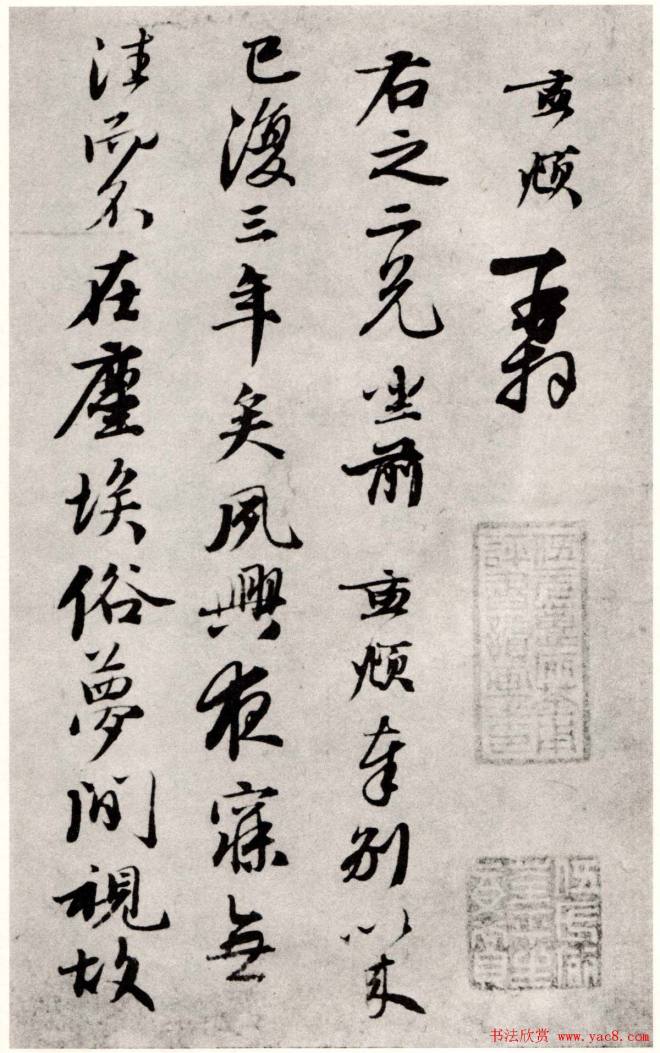 孟頫再拜
右之二兄坐前孟頫奉別以来
已復三年矣夙興夜寐無
往而不在塵埃俗夢間視故
书法欣赏 www.yac8.com